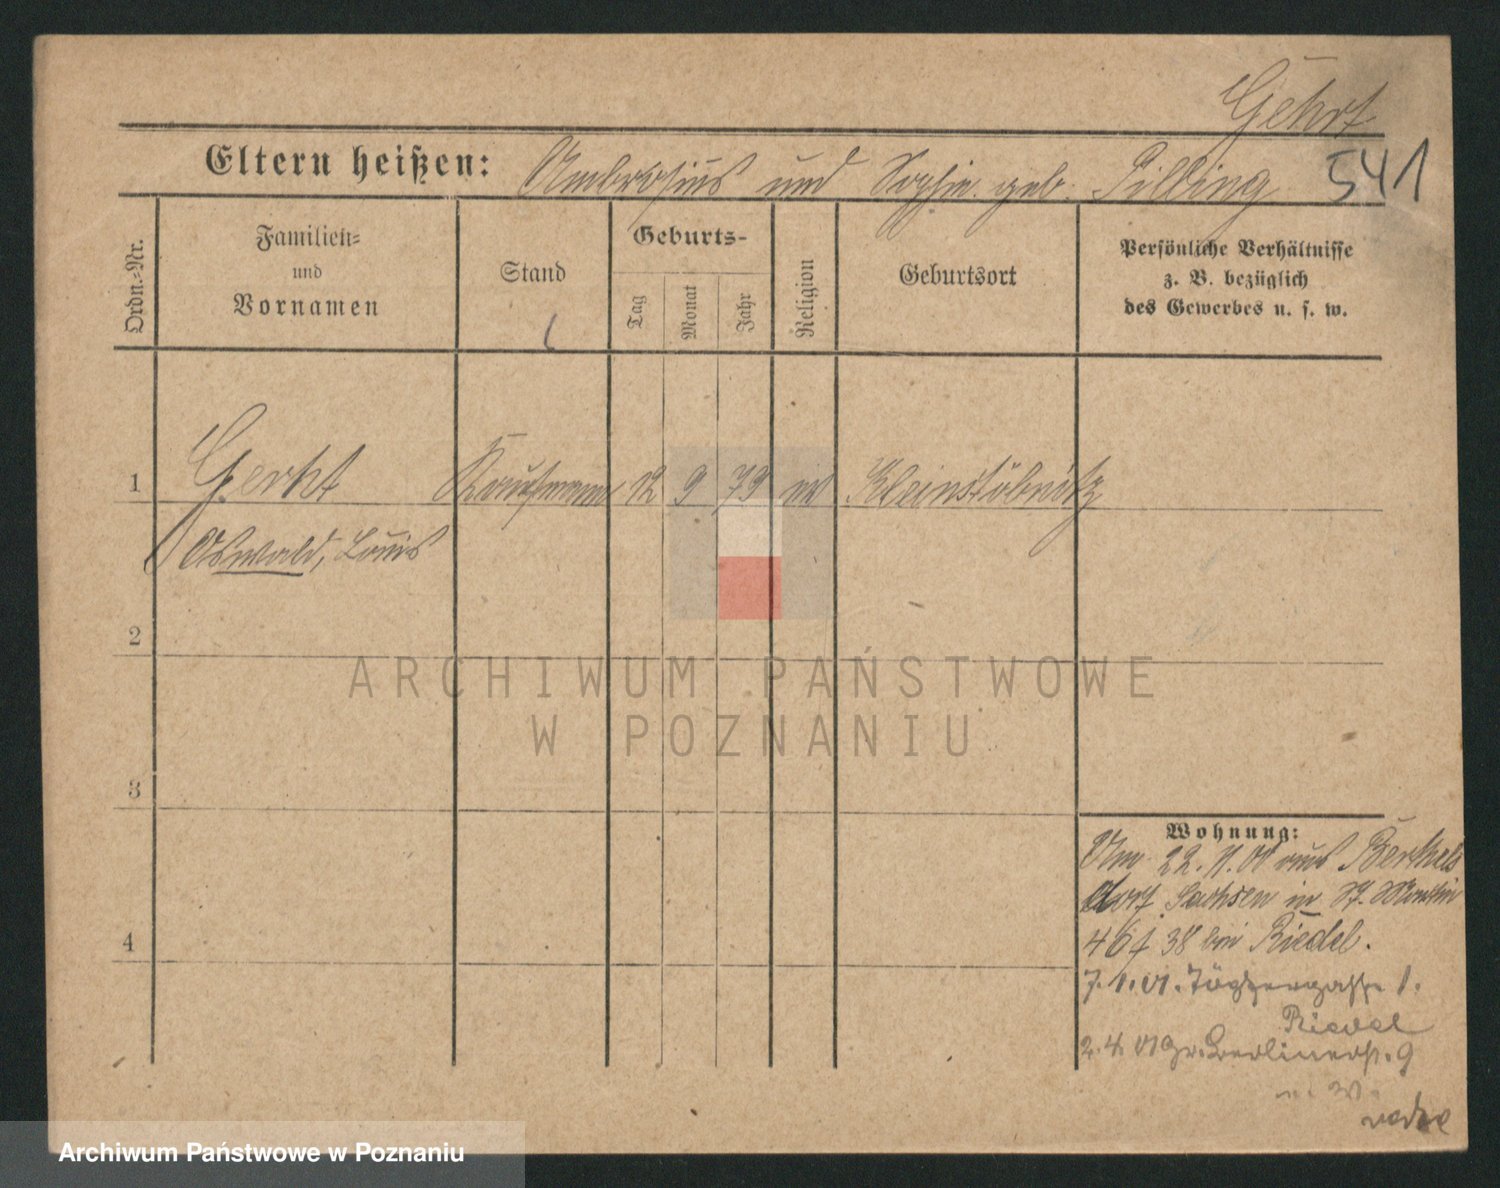 Gehrt
Eltern heißen: Ambrosius und Sophie geb. Pilling 541
Ordn.=Nr.
Familien=
und
Vornamen
Stand
Geburts-
Tag
Monat
Jahr
Religion
Geburtsort
Persönliche Verhältnisse
z. B. bezüglich
des Gewerbes u. s. w.
1
Gerht Kaufmann 12 9 79 ev Kleinstöbnitz
Oswald, Louis
2
ARCHIWUM PAŃSTWOWE
W POZNANIU
3
Wohnung:
Am 22. 11. 00 aus Berthels
dorf Sachsen in St. Martin
46/38 bei Riedel.
7. 1. 01. 1.
Riedel
2. 4. 01 Gr. Berlinerst. 9
4
Archiwum Państwowe w Poznaniu